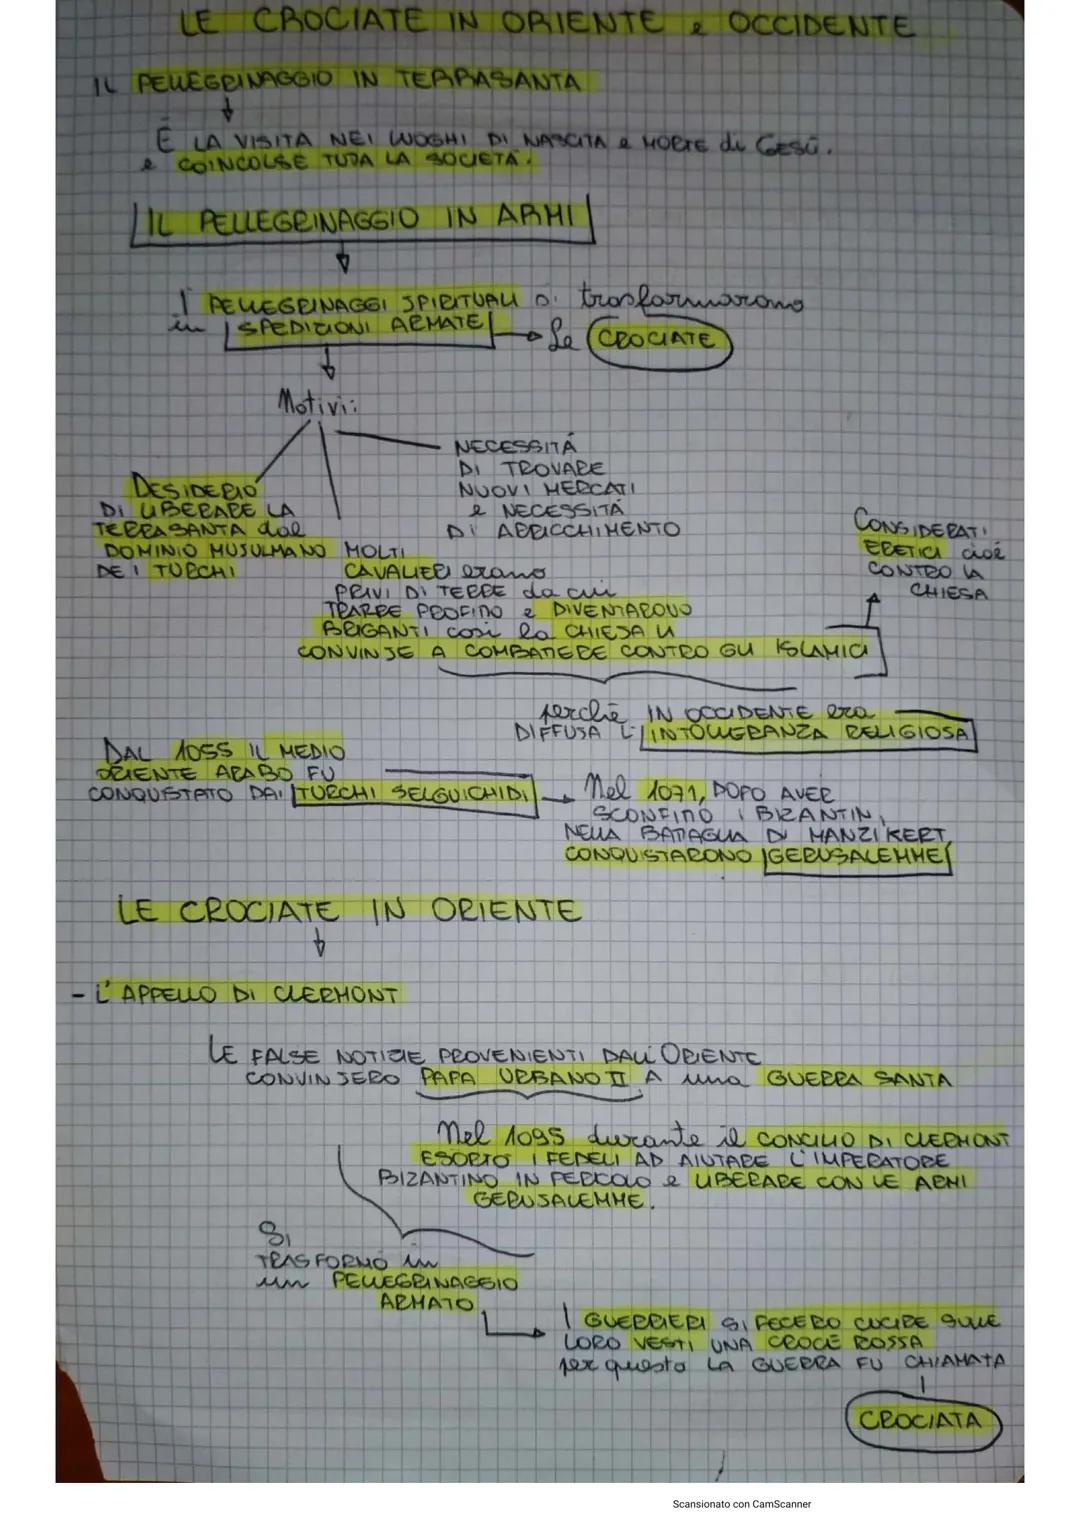 LE CROCIATE IN ORIENTE e OCCIDENTE
IL PELLEGRINAGGIO IN TERRASANTA
È LA VISITA NEI LUOGHI DI NASCITA e MORTE di GESÙ.
e COINVOLSE TUTTA LA SOCIETÀ.
IL PELLEGRINAGGIO IN ARMI
I PELLEGRINAGGI SPIRITUALI si trasformarono
in SPEDIZIONI ARMATE
Le CROCIATE
Motivi:
NECESSITÀ
DI TROVARE
NUOVI MERCATI
e NECESSITÀ
DI ARRICCHIMENTO
DESIDERIO
DI LIBERARE LA
TERRASANTA dal
DOMINIO MUSULMANO
DEI TURCHI
MOLTI
CAVALIERI erano
PRIVI DI TERRE da cui
TRARRE PROFITTO e DIVENTAROVO
BRIGANTI così la CHIESA LI
CONVINSE A COMBATTERE CONTRO GLI ISLAMICI
CONSIDERATI
ERETICI cioè
CONTRO LA
CHIESA
perchè IN OCCIDENTE era
DIFFUSA L'INTOLLERANZA RELIGIOSA
DAL 1055 IL MEDIO
ORIENTE ARABO FU
CONQUISTATO DAI TURCHI SELGUICHIDI
Nel 1071, DOPO AVER
SCONFITTO I BIZANTINI
NELLA BATTAGLIA DI MANZIKERT,
CONQUISTARONO GERUSALEMME
LE CROCIATE IN ORIENTE
- L'APPELLO DI CLERMONT
LE FALSE NOTIZIE PROVENIENTI DALL'ORIENTE
CONVINSERO PAPA URBANO II A una GUERRA SANTA
Nel 1095 durante il CONCILIO DI CLERMONT
ESORTÒ I FEDELI AD AIUTARE L'IMPERATORE
BIZANTINO IN PERICOLO e LIBERARE CON LE ARMI
GERUSALEMME.
SI
TRASFORMÒ in
un PELLEGRINAGGIO
ARMATO
I GUERRIERI SI FECERO CUCIRE SULLE
LORO VESTI UNA CROCE ROSSA
per questo LA GUERRA FU CHIAMATA
CROCIATA
Scansionato con CamScanner